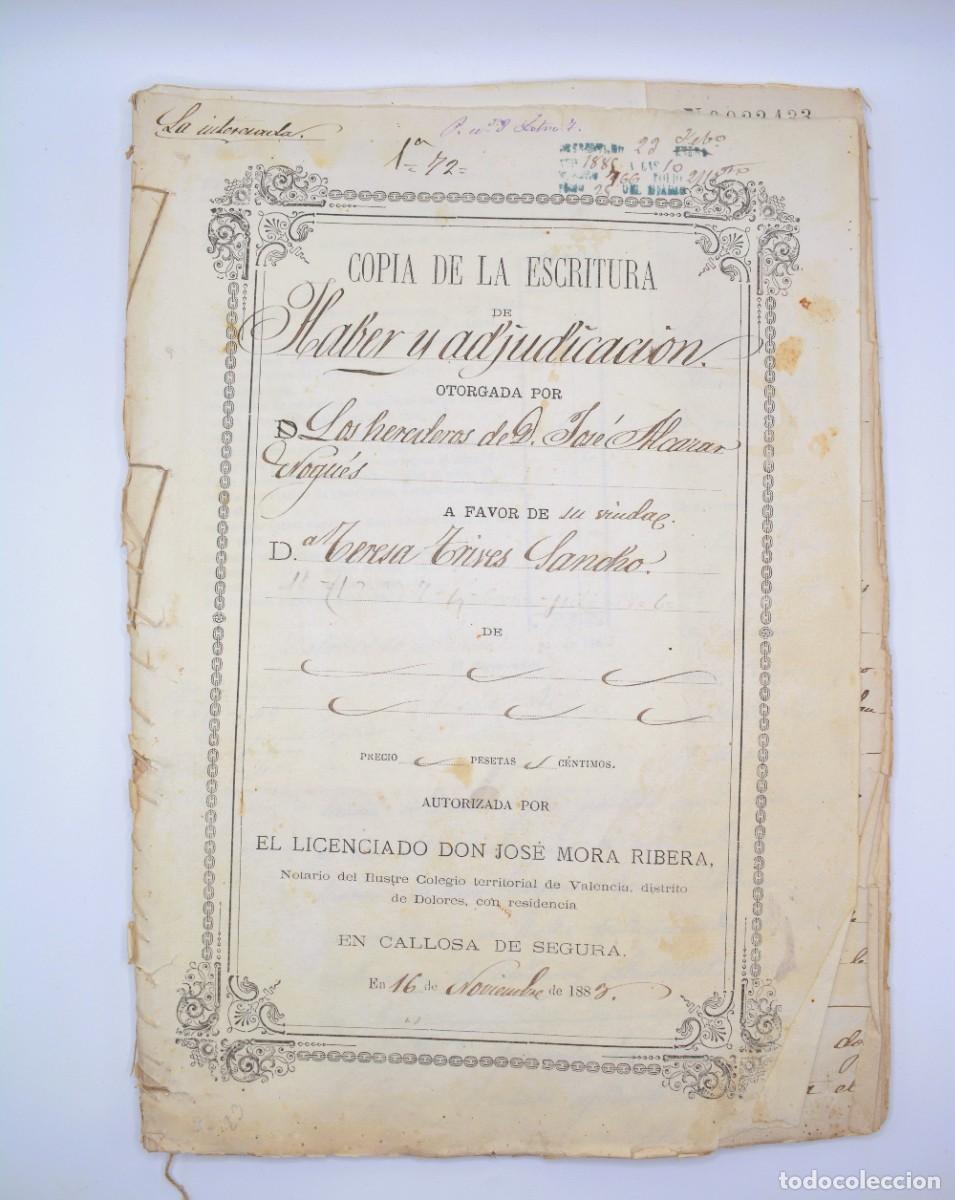 La interesada.
1ª
= 72 =
22 Febº
1885 A LAS 10
FOLIO 211
25 DEL DIARIO
COPIA DE LA ESCRITURA
DE
Haber y adjudicación.
OTORGADA POR
D Los herederos de D. José Alcaraz
Nogués
A FAVOR DE su viuda
D.ª Teresa Trives Sancho.
DE
PRECIO PESETAS CÉNTIMOS.
AUTORIZADA POR
EL LICENCIADO DON JOSÉ MORA RIBERA,
Notario del Ilustre Colegio territorial de Valencia, distrito
de Dolores, con residencia
EN CALLOSA DE SEGURA.
En 16 de Noviembre de 1883.
todocoleccion